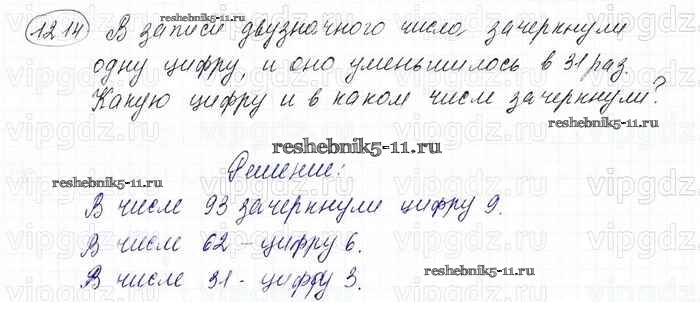 1214 В записи двузначного числа зачеркнули
одну цифру, и оно уменьшилось в 31 раз.
Какую цифру и в каком числе зачеркнули?
Решение:
В числе 93 зачеркнули цифру 9.
В числе 62 - цифру 6.
В числе 31 - цифру 3.
reshebnik5-11.ru
reshebnik5-11.ru
reshebnik5-11.ru
reshebnik5-11.ru
reshebnik5-11.ru
vipgdz.ru